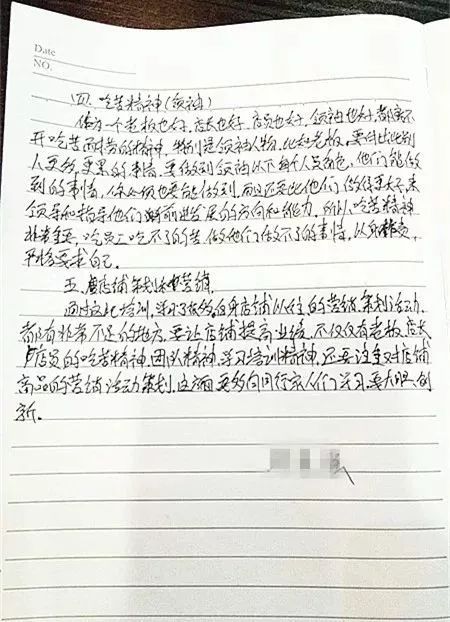 Date
NO.
四. 吃苦精神(领袖)
做为一个老板也好,店长也好,店员也好,领袖也好,都离不
开吃苦耐劳的精神,特别是领袖人物,比如老板,要付出比别
人更多,更累的事情,要做到领袖以下每个人员角色,他们能做
到的事情,你必须也要能做到,而且还要比他们做得更好,来
领导和指导他们朝前进发展的方向和能力,所以吃苦精神
非常重要,吃员工吃不了的苦,做他们做不了的事情,从
严格要求自己。
五. 店铺策划和营销.
通过这次培训,学习了很多自身店铺以往的营销,策划活动,
都有非常不足的地方,要让店铺提高业绩,不仅仅有老板,店长
店员的吃苦精神,团队精神,学习培训精神,还要注重对店铺
商品的营销活动策划,这方面更多向同行家人们学习,要大胆创
新.